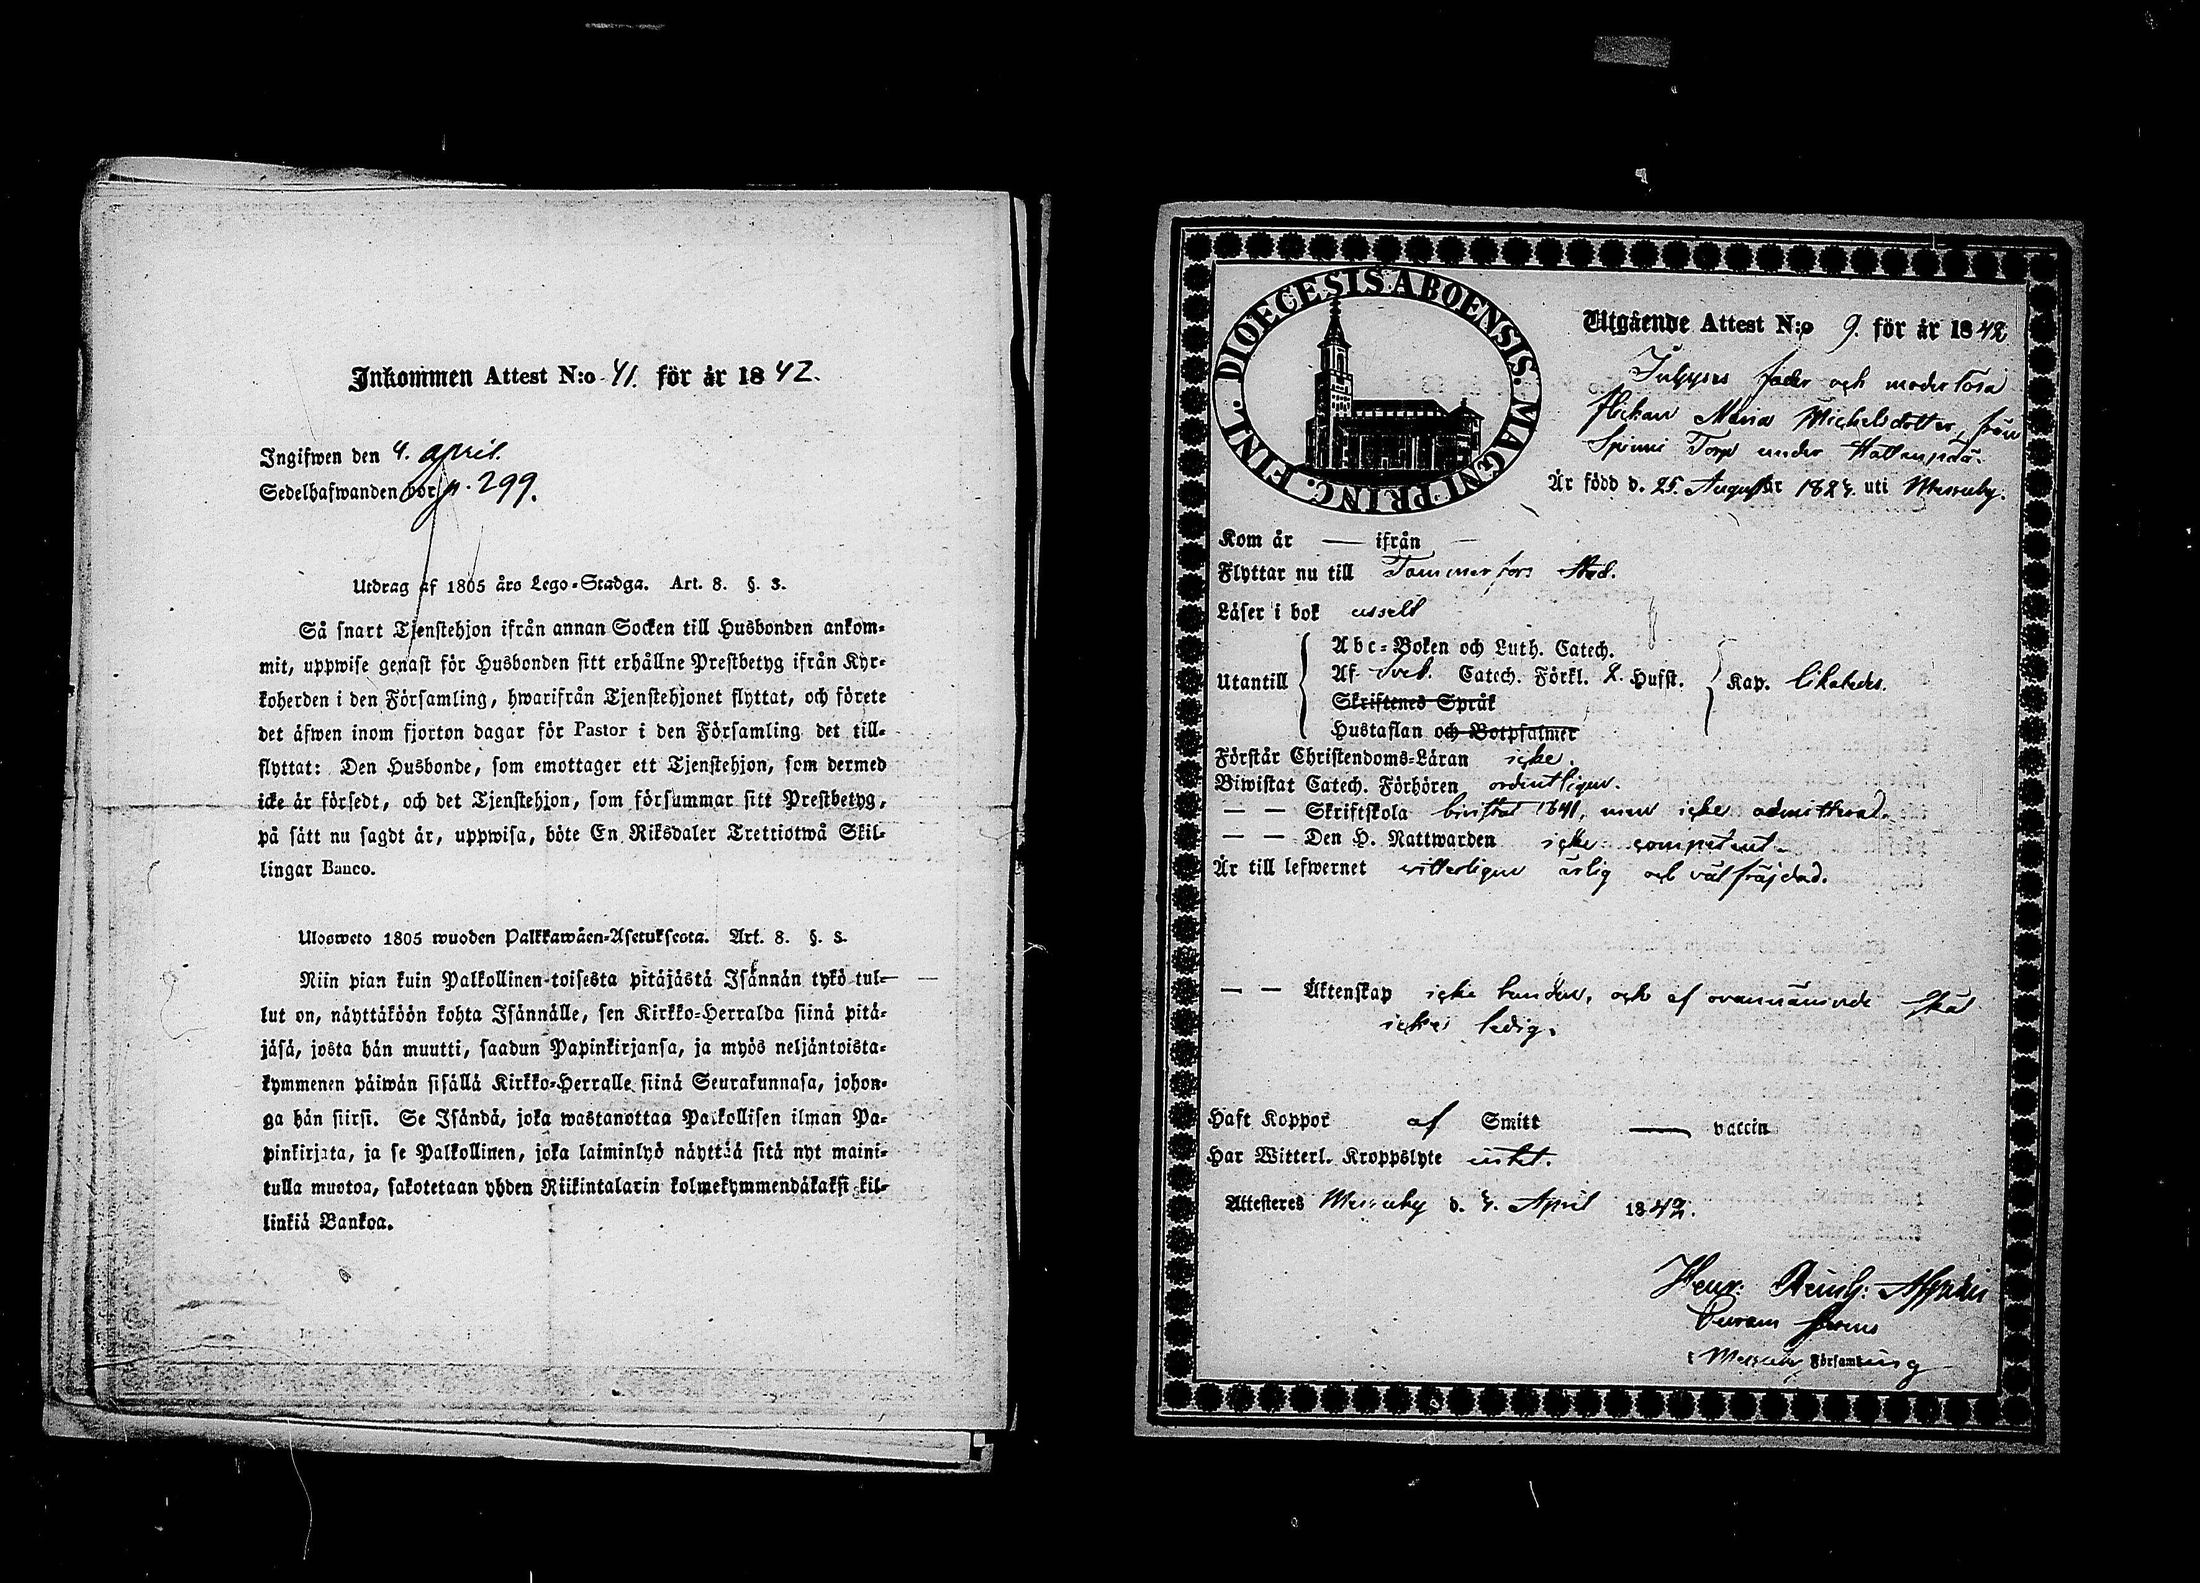 Inkommen Attest N:o 41. för år 1842.
Ingifwen den 4. april.
Sedelhafwanden bor p. 299.
Utdrag af 1805 års Lego-Stadga. Art. 8. §. 3.
Så snart Tjenstehjon ifrån annan Socken till Husbonden ankom-
mit, uppwise genast för Husbonden sitt erhållne Prestbetyg ifrån Kyr-
koherden i den Församling, hwarifrån Tjenstehjonet flyttat, och förete
det äfwen inom fjorton dagar för Pastor i den Församling det till-
flyttat: Den Husbonde, som emottager ett Tjenstehjon, som dermed
icke är försedt, och det Tjenstehjon, som försummar sitt Prestbetyg,
på sätt nu sagdt är, uppwisa, böte En Riksdaler Trettiotwå Skil-
lingar Banco.
Ulosweto 1805 wuoden Palkkawäen-Asetuksesta. Art. 8. §. 3.
Niin pian kuin Palkollinen toisesta pitäjästä Isännän tykö tul-
lut on, näyttäköön kohta Isännälle, sen Kirkko-Herralda siinä pitä-
jäsä, josta hän muutti, saadun Papinkirjansa, ja myös neljäntoista-
kymmenen päiwän sisällä Kirkko-Herralle siinä Seurakunnasa, johon-
ga hän siirsi. Se Isändä, joka wastanottaa Palkollisen ilman Pa-
pinkirjata, ja se Palkollinen, joka laiminlyö näyttää sitä nyt maini-
tulla muotoa, sakotetaan yhden Riikintalarin kolmekymmendäkaksi kil-
linkiä Bankoa.
DIOECESIS ABOENSIS. MAGNI PRINC. FINL.
Utgående Attest N:o 9. för år 1842
fader och moderlösa
flickan Maria Michelsdotter, från
Torp under Hattanpää.
Är född d. 25. August år 1824. uti Messuby.
Kom år — ifrån —
Flyttar nu till Tammerfors Stad.
Läser i bok usselt
Utantill
Abc-Boken och Luth. Catech.
Af Sveb. Catech. Förkl. 2. Hufst.
Skriftenes Språk
Hustaflan och Botpsalmer
Kap. likaledes.
Förstår Christendoms-Läran icke.
Biwistat Catech. Förhören ordentligen.
— — Skriftskola bivistat 1841, men icke admitterad.
— — Den H. Nattwarden icke competent.
Är till lefwernet witterligen ärlig och välfräjdad.
— — Äktenskap icke bunden, och af ovannämnde skäl
icke ledig.
Haft Koppor af Smitt — vaccin
Har Witterl. Kroppslyte intet.
Attesteres Messuby d. 4. April 1842.
Henr: Reinh:
i Messuby Församling